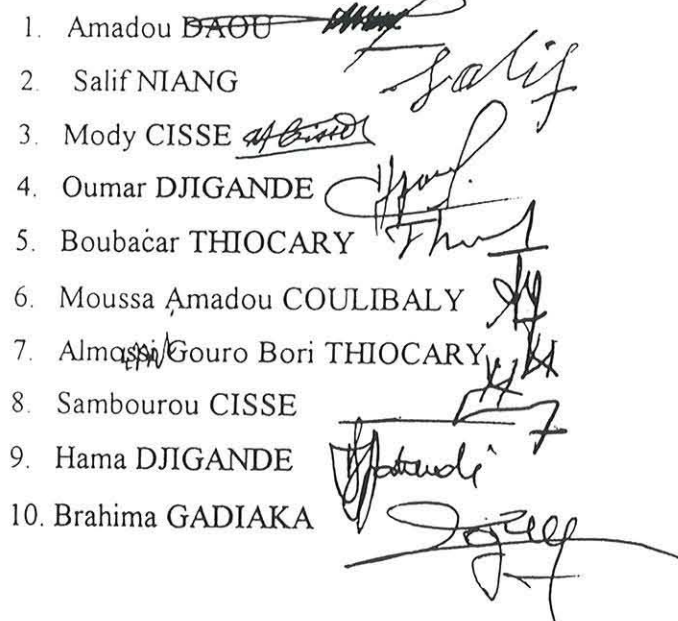 1. Amadou DAOU
2. Salif NIANG Salif
3. Mody CISSE
4. Oumar DJIGANDE
5. Boubacar THIOCARY
6. Moussa Amadou COULIBALY
7. Gouro Bori THIOCARY
8. Sambourou CISSE
9. Hama DJIGANDE
10. Brahima GADIAKA